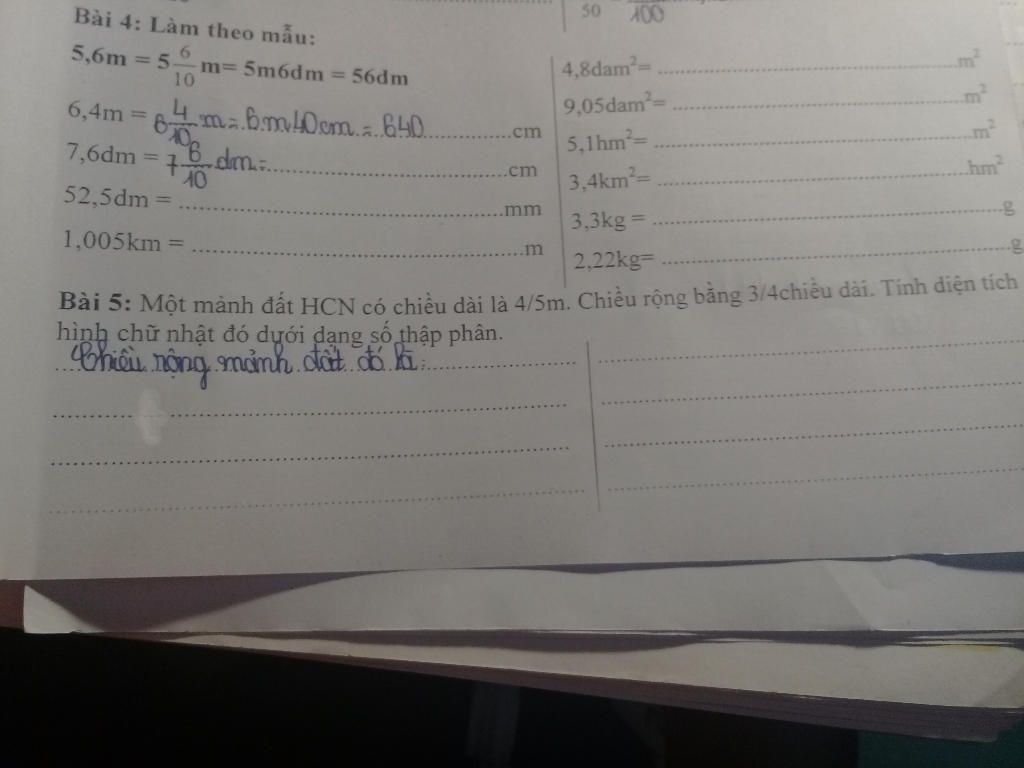 50 100
Bài 4: Làm theo mẫu:
5,6m = 5 6/10 m= 5m6dm = 56dm
6,4m = 6 4/10 m = 6m40cm = 640 ............cm
7,6dm = 7 6/10 dm = ............cm
52,5dm = ............mm
1,005km = ............m
4,8dam²= ............m²
9,05dam²= ............m²
5,1hm²= ............m²
3,4km²= ............hm²
3,3kg = ............g
2,22kg= ............g
Bài 5: Một mảnh đất HCN có chiều dài là 4/5m. Chiều rộng bằng 3/4chiều dài. Tính diện tích
hình chữ nhật đó dưới dạng số thập phân.
Chiều rộng mảnh đất đó là: